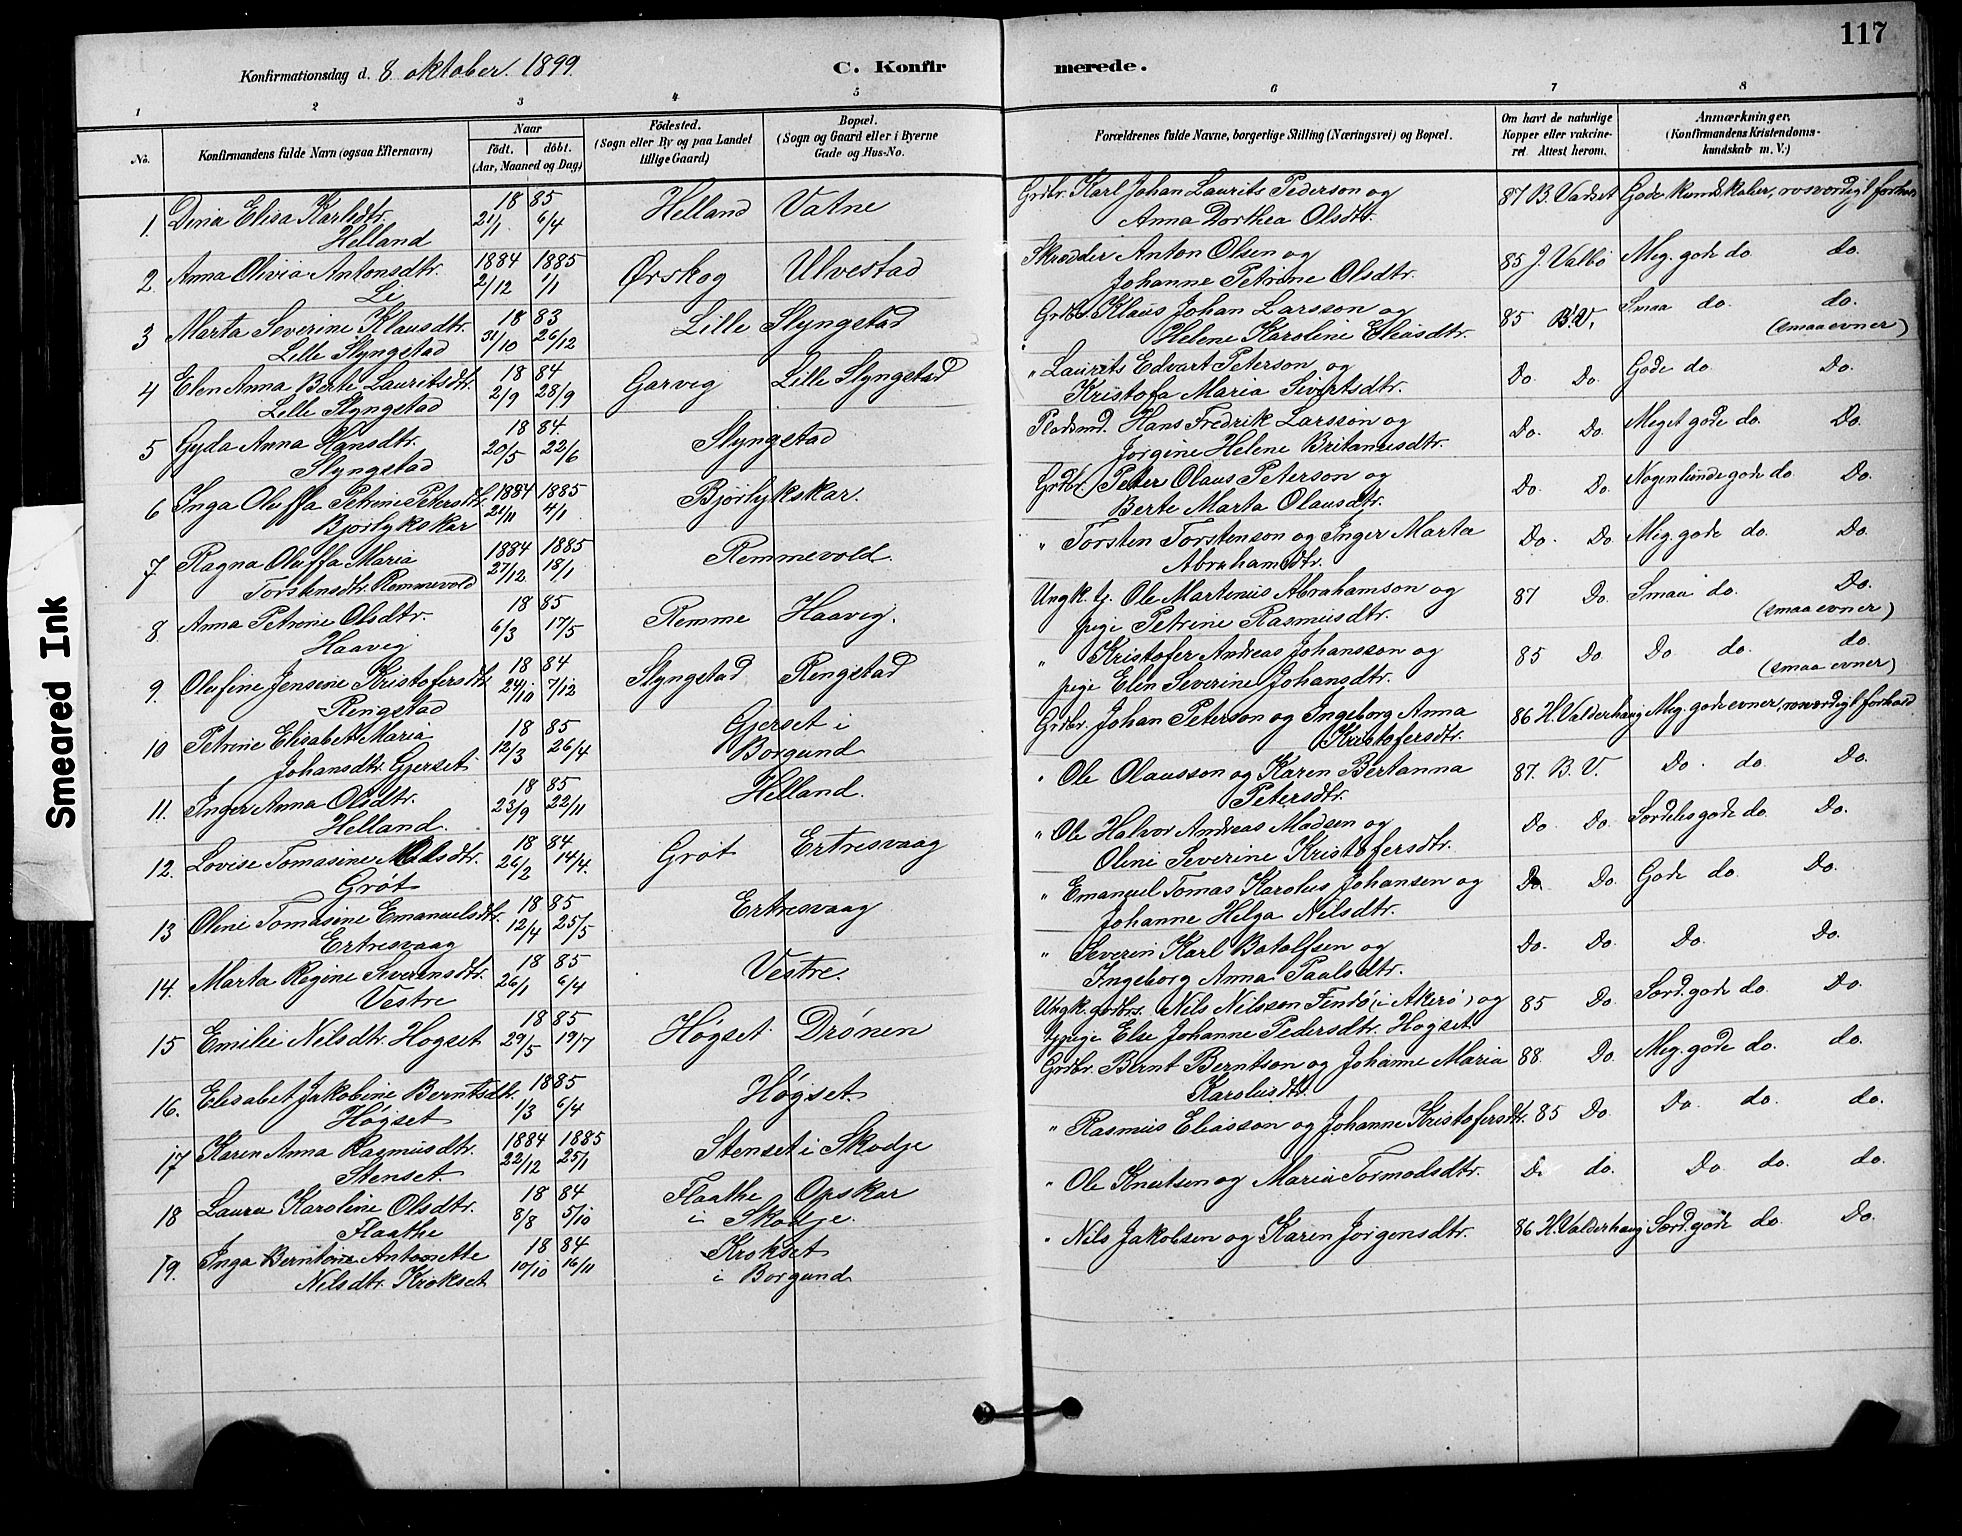 117
Konfirmationsdag d. 8 oktober. 1899.
C. Konfirmerede.
1 2 3 4 5 6 7 8
No. Konfirmandens fulde Navn (ogsaa Efternavn) Naar født. døbt. (Aar, Maaned og Dag) Födested. (Sogn eller By og paa Landet tillige Gaard) Bopæl. (Sogn og Gaard eller i Byerne Gade og Hus-No. Forældrenes fulde Navne, borgerlige Stilling (Næringsvei) og Bopæl. Om havt de naturlige Kopper eller vakcineret. Attest herom. Anmærkninger, (Konfirmandens Kristendomskundskab m. V.)
1. Dina Elisa Karlsdtr. 18 85 Helland Vatne Grdbr. Karl Johan Laurits Pederson og 87 B. Vadset Gode kundskaber, rosværdigt forhold
Helland 21/1 6/4 Anna Dorthea Olsdtr.
2. Anna Olivia Antonsdtr. 1884 1885 Ørskog Ulvestad Skrædder Anton Olsen og 85 J. Valbö Meg. gode do. do.
Li 2/12 1/1 Johanne Petrine Olsdtr.
3 Marta Severine Klausdtr. 18 83 Lille Slyngstad Grdbr. Klaus Johan Larsson og 85 B.V. Smaa do. do.
Lille Slyngstad 31/10 26/12 Helene Karoline Eliasdtr. (smaa evner)
4 Elen Anna Berte Lauritsdtr. 18 84 Garvig Lille Slyngstad " Laurits Edvart Peterson og Do. Do. Gode do. Do.
Lille Slyngstad 2/9 28/9 Kristofa Maria Sivertsdtr.
5 Gyda Anna Hansdtr. 18 84. Slyngstad Pladsmd. Hans Fredrik Larsson og Do. Do. Meget gode do. Do.
Slyngstad 20/5 22/6 Jorgine Helene Britanusdtr.
6 Inga Oluffa Petrine Petersdtr. 1884 1885 Bjørlykskar. Grdbr. Peter Olaus Peterson og Do. Do. Nogenlunde gode do Do.
Bjorlykskar 21/11 4/1 Berte Marta Olausdtr.
7 Ragna Oluffa Maria 1884 1885 Remmevold. " Torsten Torstenson og Inger Marta Do. Do. Meg. gode do. Do.
Torstensdtr. Remmevold 27/12 18/1 Abrahamsdtr.
8 Anna Petrine Olsdtr. 18 85 Remme Haavig. Ungk. tj. Ole Martinus Abrahamson og 87 Do. Smaa do. Do.
Haavig 6/3 17/5 pige Petrine Rasmusdtr. (smaa evner)
9. Olufine Jensine Kristofersdt. 18 84 Slyngstad Rengstad " Kristofer Andreas Johansson og 85 Do Do do. do.
Rengstad 24/10 7/12 pige Elen Severine Johansdtr. (smaa evner)
10 Petrine Elisabet Maria 18 85 Gjerset i Grdbr. Johan Peterson og Ingeborg Anna 86 H. Valderhaug Meg. gode evner, rosværdigt forhold
Johansdtr. Gjerset 12/3 26/4 Borgund Kristofersdtr.
11. Inger Anna Olsdtr. 18 85 Helland. " Ole Olausson og Karen Bertanna 87. B. V. Do. do. Do.
Helland. 23/9 22/11 Petersdtr.
12. Lovise Tomasine Olsdtr. 18 84 Grøt Ertresvaag " Ole Halvor Andreas Madsen og Do Do. Særdeles gode do. Do.
Grøt 26/2 14/4. Oline Severine Kristofersdtr.
13 Oline Tomasine Emanuelsdtr. 18 85 Ertresvaag " Emanuel Tomas Karolus Johansen og Do Do. Gode do. Do.
Ertresvaag 12/4 25/5 Johanne Helga Nilsdtr.
14. Marta Regine Severinsdtr. 18 85 Vestre. " Severin Karl Botolfsen og Do. Do. Do. Do.
Vestre 26/1 6/4 Ingeborg Anna Paalsdtr.
15 Emilie Nilsdtr. Hogset 18 85 Högset Drönen Ungk. grdbrs. Nils Nilsson Findö (i Akerö) og 85 Do. Særd. gode do. Do.
29/5 19/7 tj pige Else Johanne Pedersdtr. Hogset
16. Elisabet Jakobine Berntsdtr. 18 85 Högset. Grdbr. Bernt Berntson og Johanne Maria 88. Do. Meg. gode do. do.
Högset 1/3 6/4 Karolusdtr.
17 Karen Anna Rasmusdtr. 1884 1885 Stenset i Skodje " Rasmus Eliasson og Johanne Kristofersdtr. 85 Do. Do. do. do.
Stenset. 22/12 25/1
18 Laura Karoline Olsdtr. 18 84 Flaathe Opskar " Ole Knutsen og Maria Tormodsdtr. Do do. Do do. do.
Flaathe 8/8 5/10 i Skodje.
19. Inga Berntine Antonette 18 84 Krokset " Nils Jakobsen og Karen Jørgensdtr. 86 H. Valderhaug Særd. gode do. Do.
Nilsdtr. Krokset 10/10 16/11 i Borgund
Smeared Ink